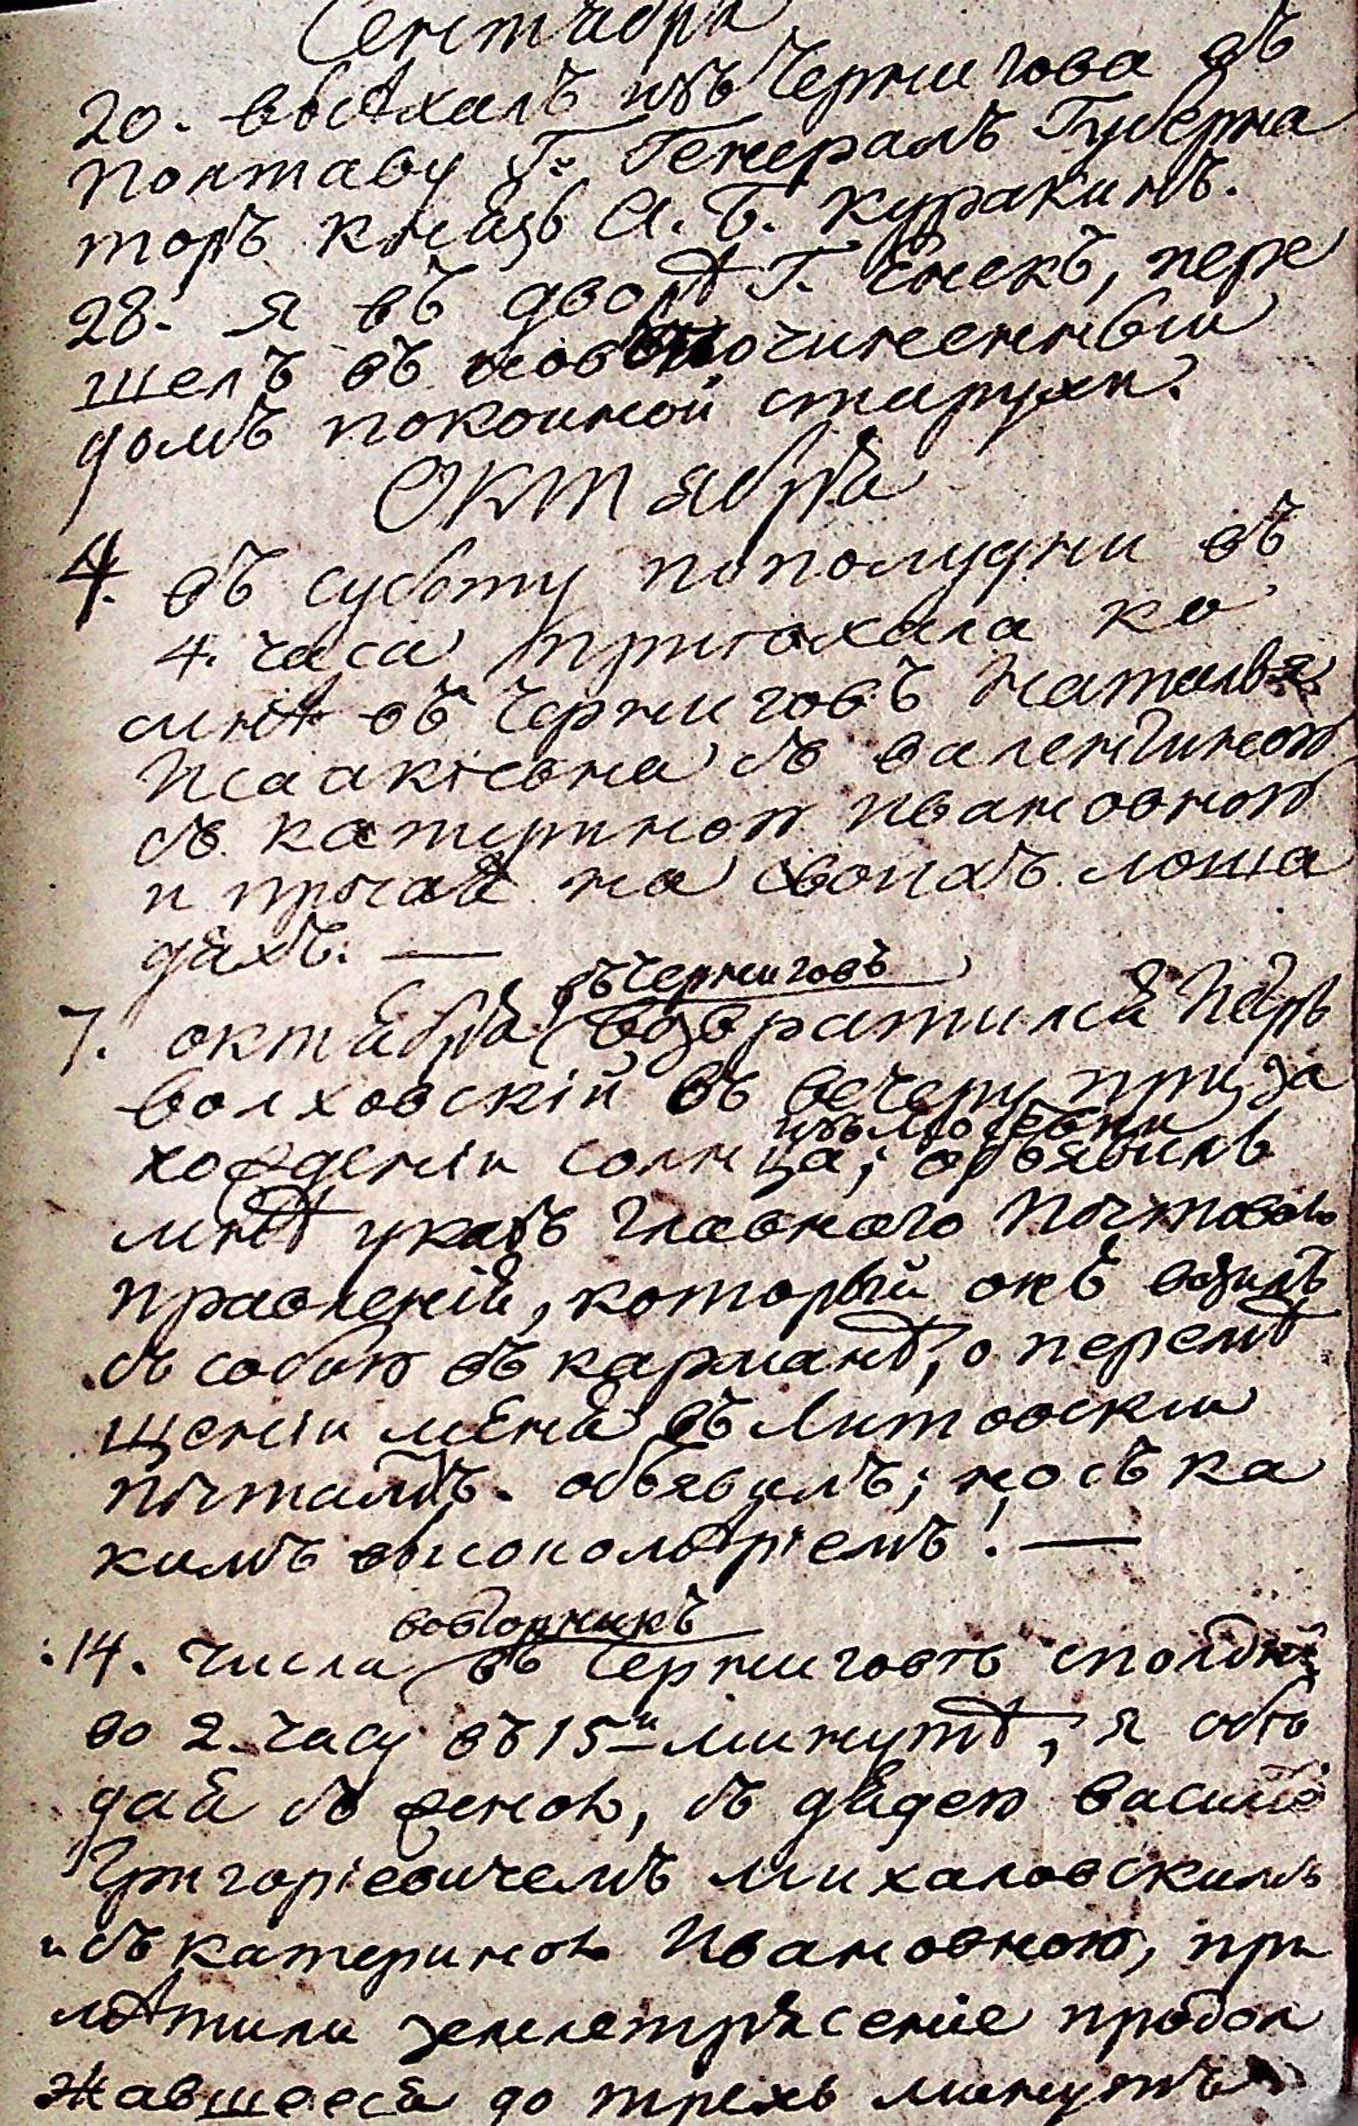 Сентября
20. выѣхалъ изъ Чернигова въ
Полтаву Г. Генералъ Губерна
торъ князь А. Б. Куракинъ.
28. я въ дворѣ Г. пере
шелъ въ новопочиненный
домъ покоиной старухи.
Октября
4. въ суботу пополудни въ
4. часа приѣхала ко
мнѣ въ Черниговъ Наталья
Исаакіевна съ валентиною
съ катериною ивановною
и прочая на своихъ лоша
дяхъ. —
въ Черниговъ
7. октября возвратился Петръ
волховскій въ вечеру при за
изъ
хожденіи солнца; объявилъ
мнѣ указъ главнаго почтоваго
правленія, который онъ возилъ
съ собою въ карманѣ, о перемѣ
щеніи меня въ Литовскии
почтамтъ. объявилъ; но съ ка
кимъ высокомѣріемъ! —
вовторникъ
14. числа въ Черниговѣ сполдня
во 2. часу въ 15й минутѣ, я обѣ
дая съ женою, съ дядею василіе
Григоріевичемъ михаловскимъ
и съ катериною Ивановною, при
мѣтили землетрясеніе продол
жавшееся до трехъ минутъ